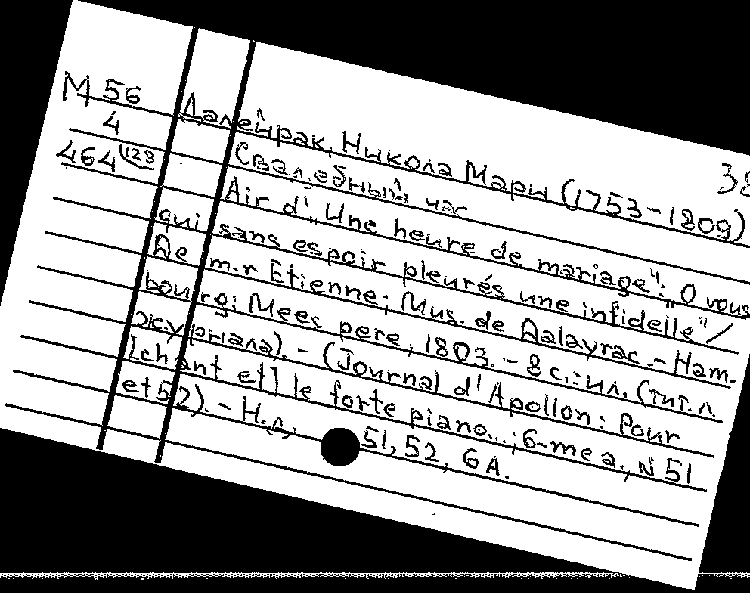 38
М 56 Далейрак, Никола Мари (1753-1809)
4 Свадебный час
464 128 Air d'„Une heure de mariage": „O vous
qui sans espoir pleurés une infidelle"/
De m-r Etienne; Mus. de Dalayrac. - Ham-
bourg: Mees pere, 1803. - 8 с.: ил. (тит. л.
журнала). - (Journal d'Apollon: Pour
[chant et] le forte piano...; 6-me a., N 51
et 52). - Н.д. 51, 52, 6 A.